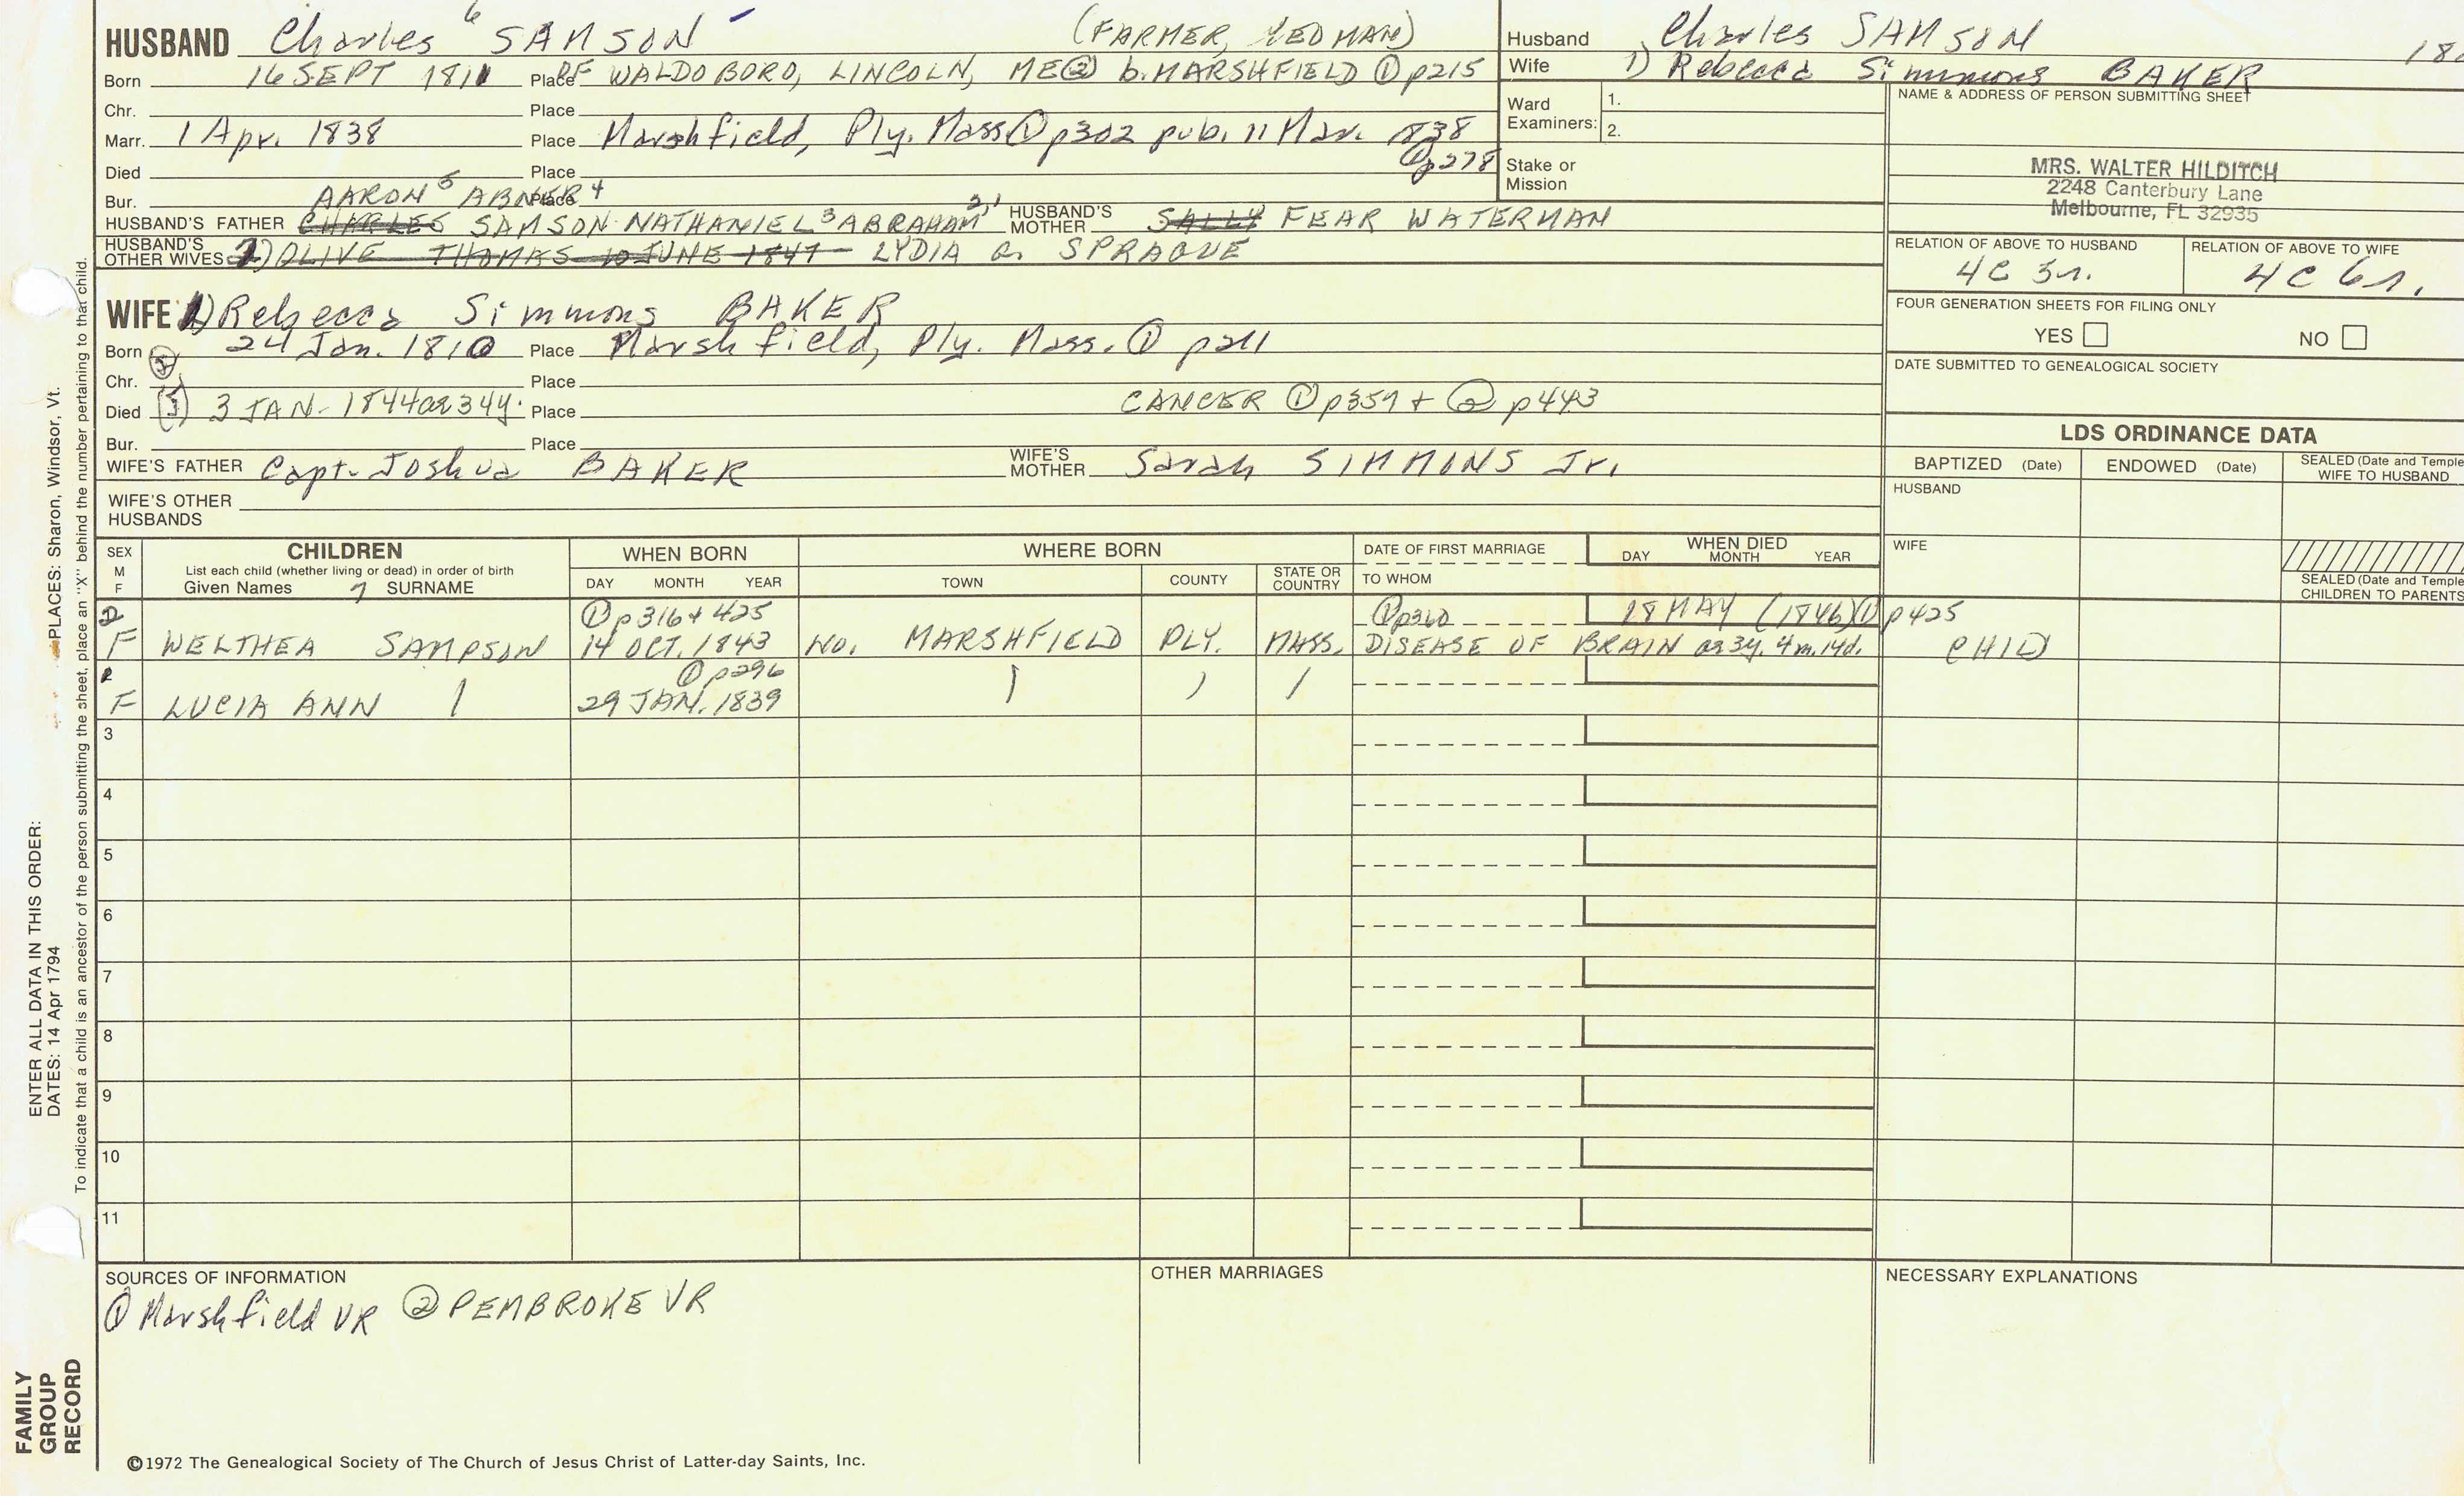 HUSBAND Charles 6 SAMSON (FARMER, YEOMAN)
Born 16 SEPT 1811 Place OF WALDOBORO, LINCOLN, ME ② b. MARSHFIELD ① p215
Chr. Place
Marr. 1 Apr. 1838 Place Marshfield, Ply. Mass. ① p302 pub. 11 Mar. 1838
① p278
Died Place
Bur. AARON 5 ABNER 4 Place
HUSBAND'S FATHER CHARLES SAMSON - NATHANIEL 3 ABRAHAM 2,1 HUSBAND'S MOTHER SALLY FEAR WATERMAN
HUSBAND'S OTHER WIVES 2) OLIVE THOMAS 10 JUNE 1847 LYDIA a. SPRAGUE
WIFE 1) Rebecca Simmons BAKER
Born 24 Jan. 1810 Place Marshfield, Ply. Mass. ① p211
Chr. Place
Died 3 JAN- 1844 ae 34y. Place CANCER ① p359 + ② p443
Bur. Place
WIFE'S FATHER Capt. Joshua BAKER WIFE'S MOTHER Sarah SIMMONS Jr.
WIFE'S OTHER HUSBANDS
Husband Charles SAMSON
Wife 1) Rebecca Simmons BAKER
Ward Examiners: 1.
2.
Stake or Mission
NAME & ADDRESS OF PERSON SUBMITTING SHEET
MRS. WALTER HILDITCH
2248 Canterbury Lane
Melbourne, FL 32935
RELATION OF ABOVE TO HUSBAND RELATION OF ABOVE TO WIFE
4C 3r. 4C 6r.
FOUR GENERATION SHEETS FOR FILING ONLY
YES NO
DATE SUBMITTED TO GENEALOGICAL SOCIETY
LDS ORDINANCE DATA
BAPTIZED (Date) ENDOWED (Date) SEALED (Date and Temple
WIFE TO HUSBAND
HUSBAND
WIFE
SEALED (Date and Temple
CHILDREN TO PARENTS
SEX M F CHILDREN WHEN BORN WHERE BORN DATE OF FIRST MARRIAGE WHEN DIED
List each child (whether living or dead) in order of birth DAY MONTH YEAR TOWN COUNTY STATE OR COUNTRY TO WHOM DAY MONTH YEAR
Given Names 7 SURNAME
2 ① p316 + 425 ① p360 18 MAY (1846) ① p425
F WELTHEA SAMPSON 14 OCT. 1843 NO. MARSHFIELD PLY. MASS. DISEASE OF BRAIN ae 3y. 4m. 14d. CHILD
① p296
F LUCIA ANN 29 JAN. 1839
3
4
5
6
7
8
9
10
11
SOURCES OF INFORMATION OTHER MARRIAGES NECESSARY EXPLANATIONS
① Marshfield VR ② PEMBROKE VR
©1972 The Genealogical Society of The Church of Jesus Christ of Latter-day Saints, Inc.
FAMILY
GROUP
RECORD
ENTER ALL DATA IN THIS ORDER:
DATES: 14 Apr 1794 PLACES: Sharon, Windsor, Vt.
To indicate that a child is an ancestor of the person submitting the sheet, place an "X" behind the number pertaining to that child.